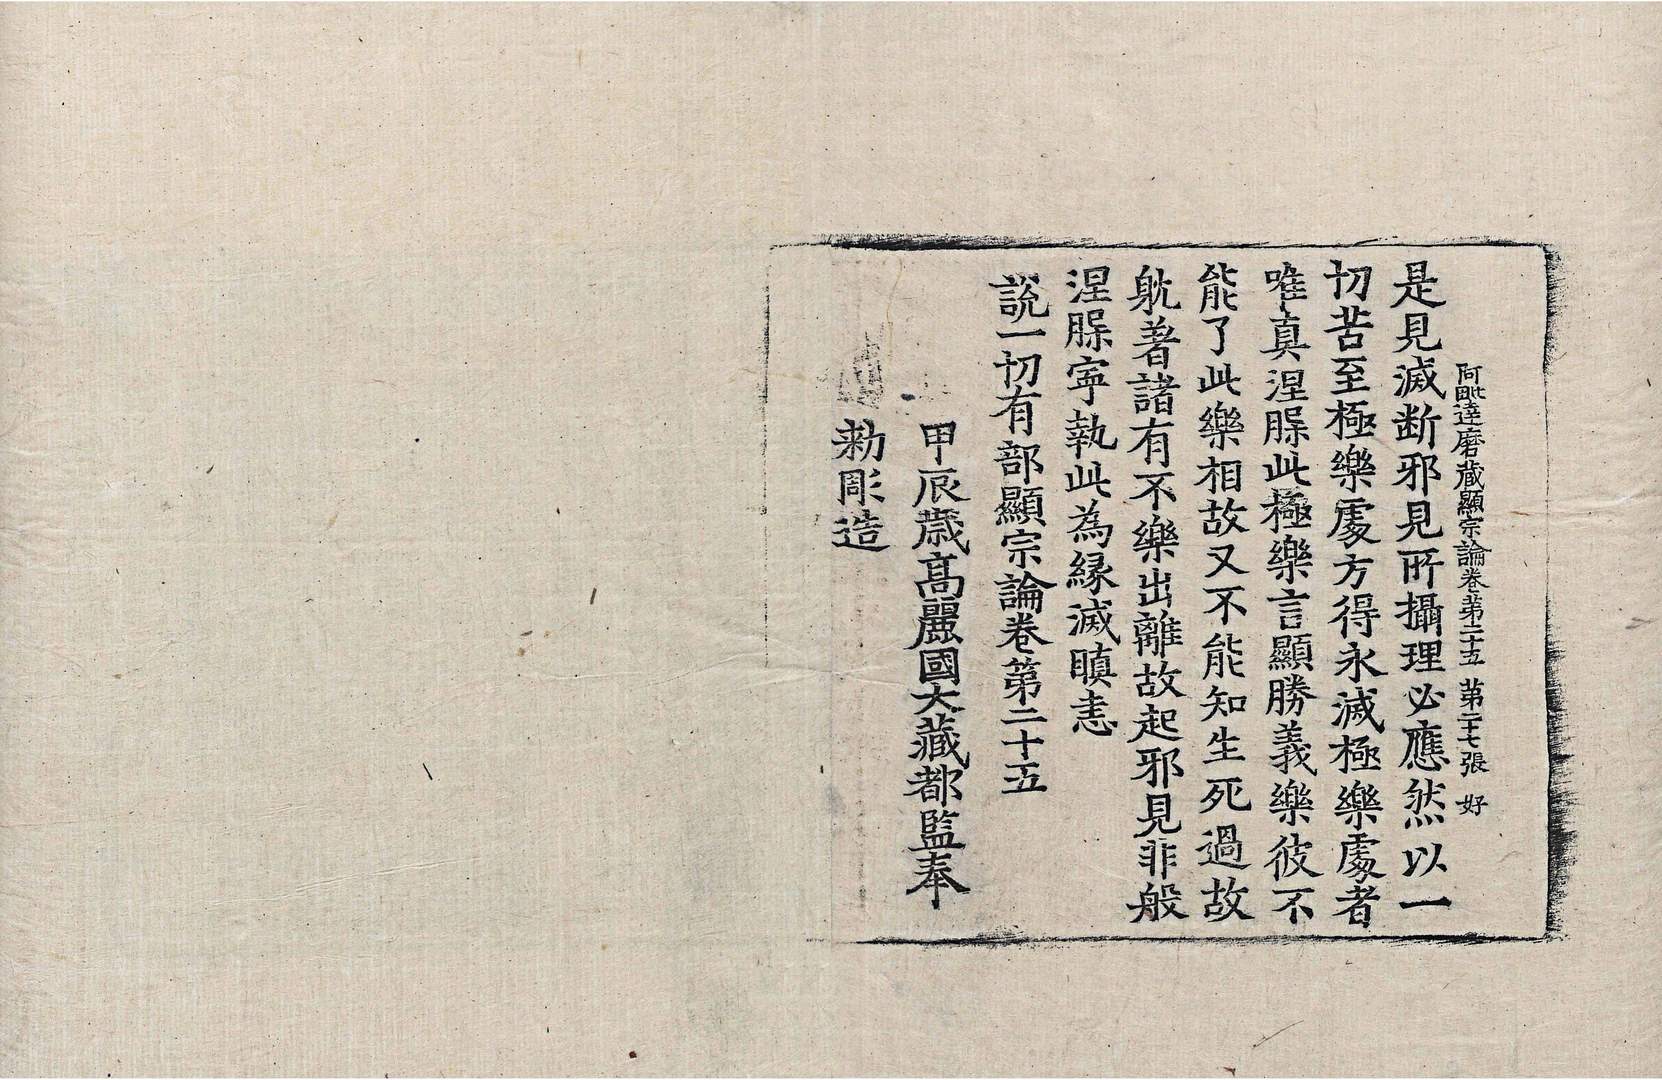 阿毗達磨藏顯宗論卷第二十五 第二十七張 好
是見滅断邪見所攝理必應然以一
切苦至極樂處方得永滅極樂處者
唯真涅槃此極樂言顯勝義樂彼不
能了此樂相故又不能知生死過故
躭著諸有不樂出離故起邪見非般
涅槃寧執此為緣滅瞋恚
說一切有部顯宗論卷第二十五
甲辰歲高麗國大藏都監奉
勑彫造